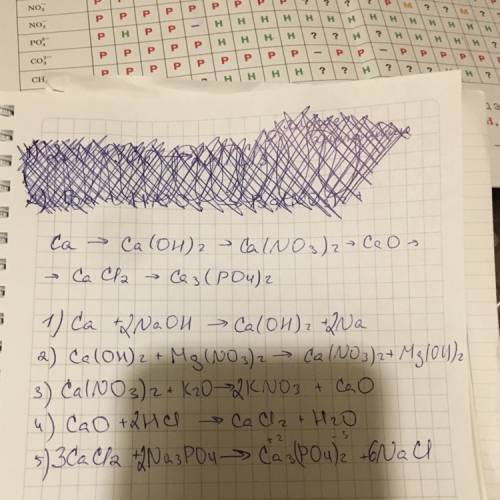 NO₃⁻ P P P P P P P P ? ? ? ? P M ? ? M
NO₂⁻ P H P P – H H H H H H
PO₄³⁻ P P P P P H H H H ? H ? ? ? ?
CO₃²⁻ P P P P P P P P P – P P – P P P P P
CH ? H H H H ? ? H ? ? ? ? H H
Ca → Ca(OH)2 → Ca(NO3)2 → CaO →
→ CaCl2 → Ca3(PO4)2
1) Ca + 2NaOH → Ca(OH)2 + 2Na
2) Ca(OH)2 + Mg(NO3)2 → Ca(NO3)2 + Mg(OH)2
3) Ca(NO3)2 + K2O → 2KNO3 + CaO
4) CaO + 2HCl → CaCl2 + H2O
+2 -3
5) 3CaCl2 + 2Na3PO4 → Ca3(PO4)2 + 6NaCl